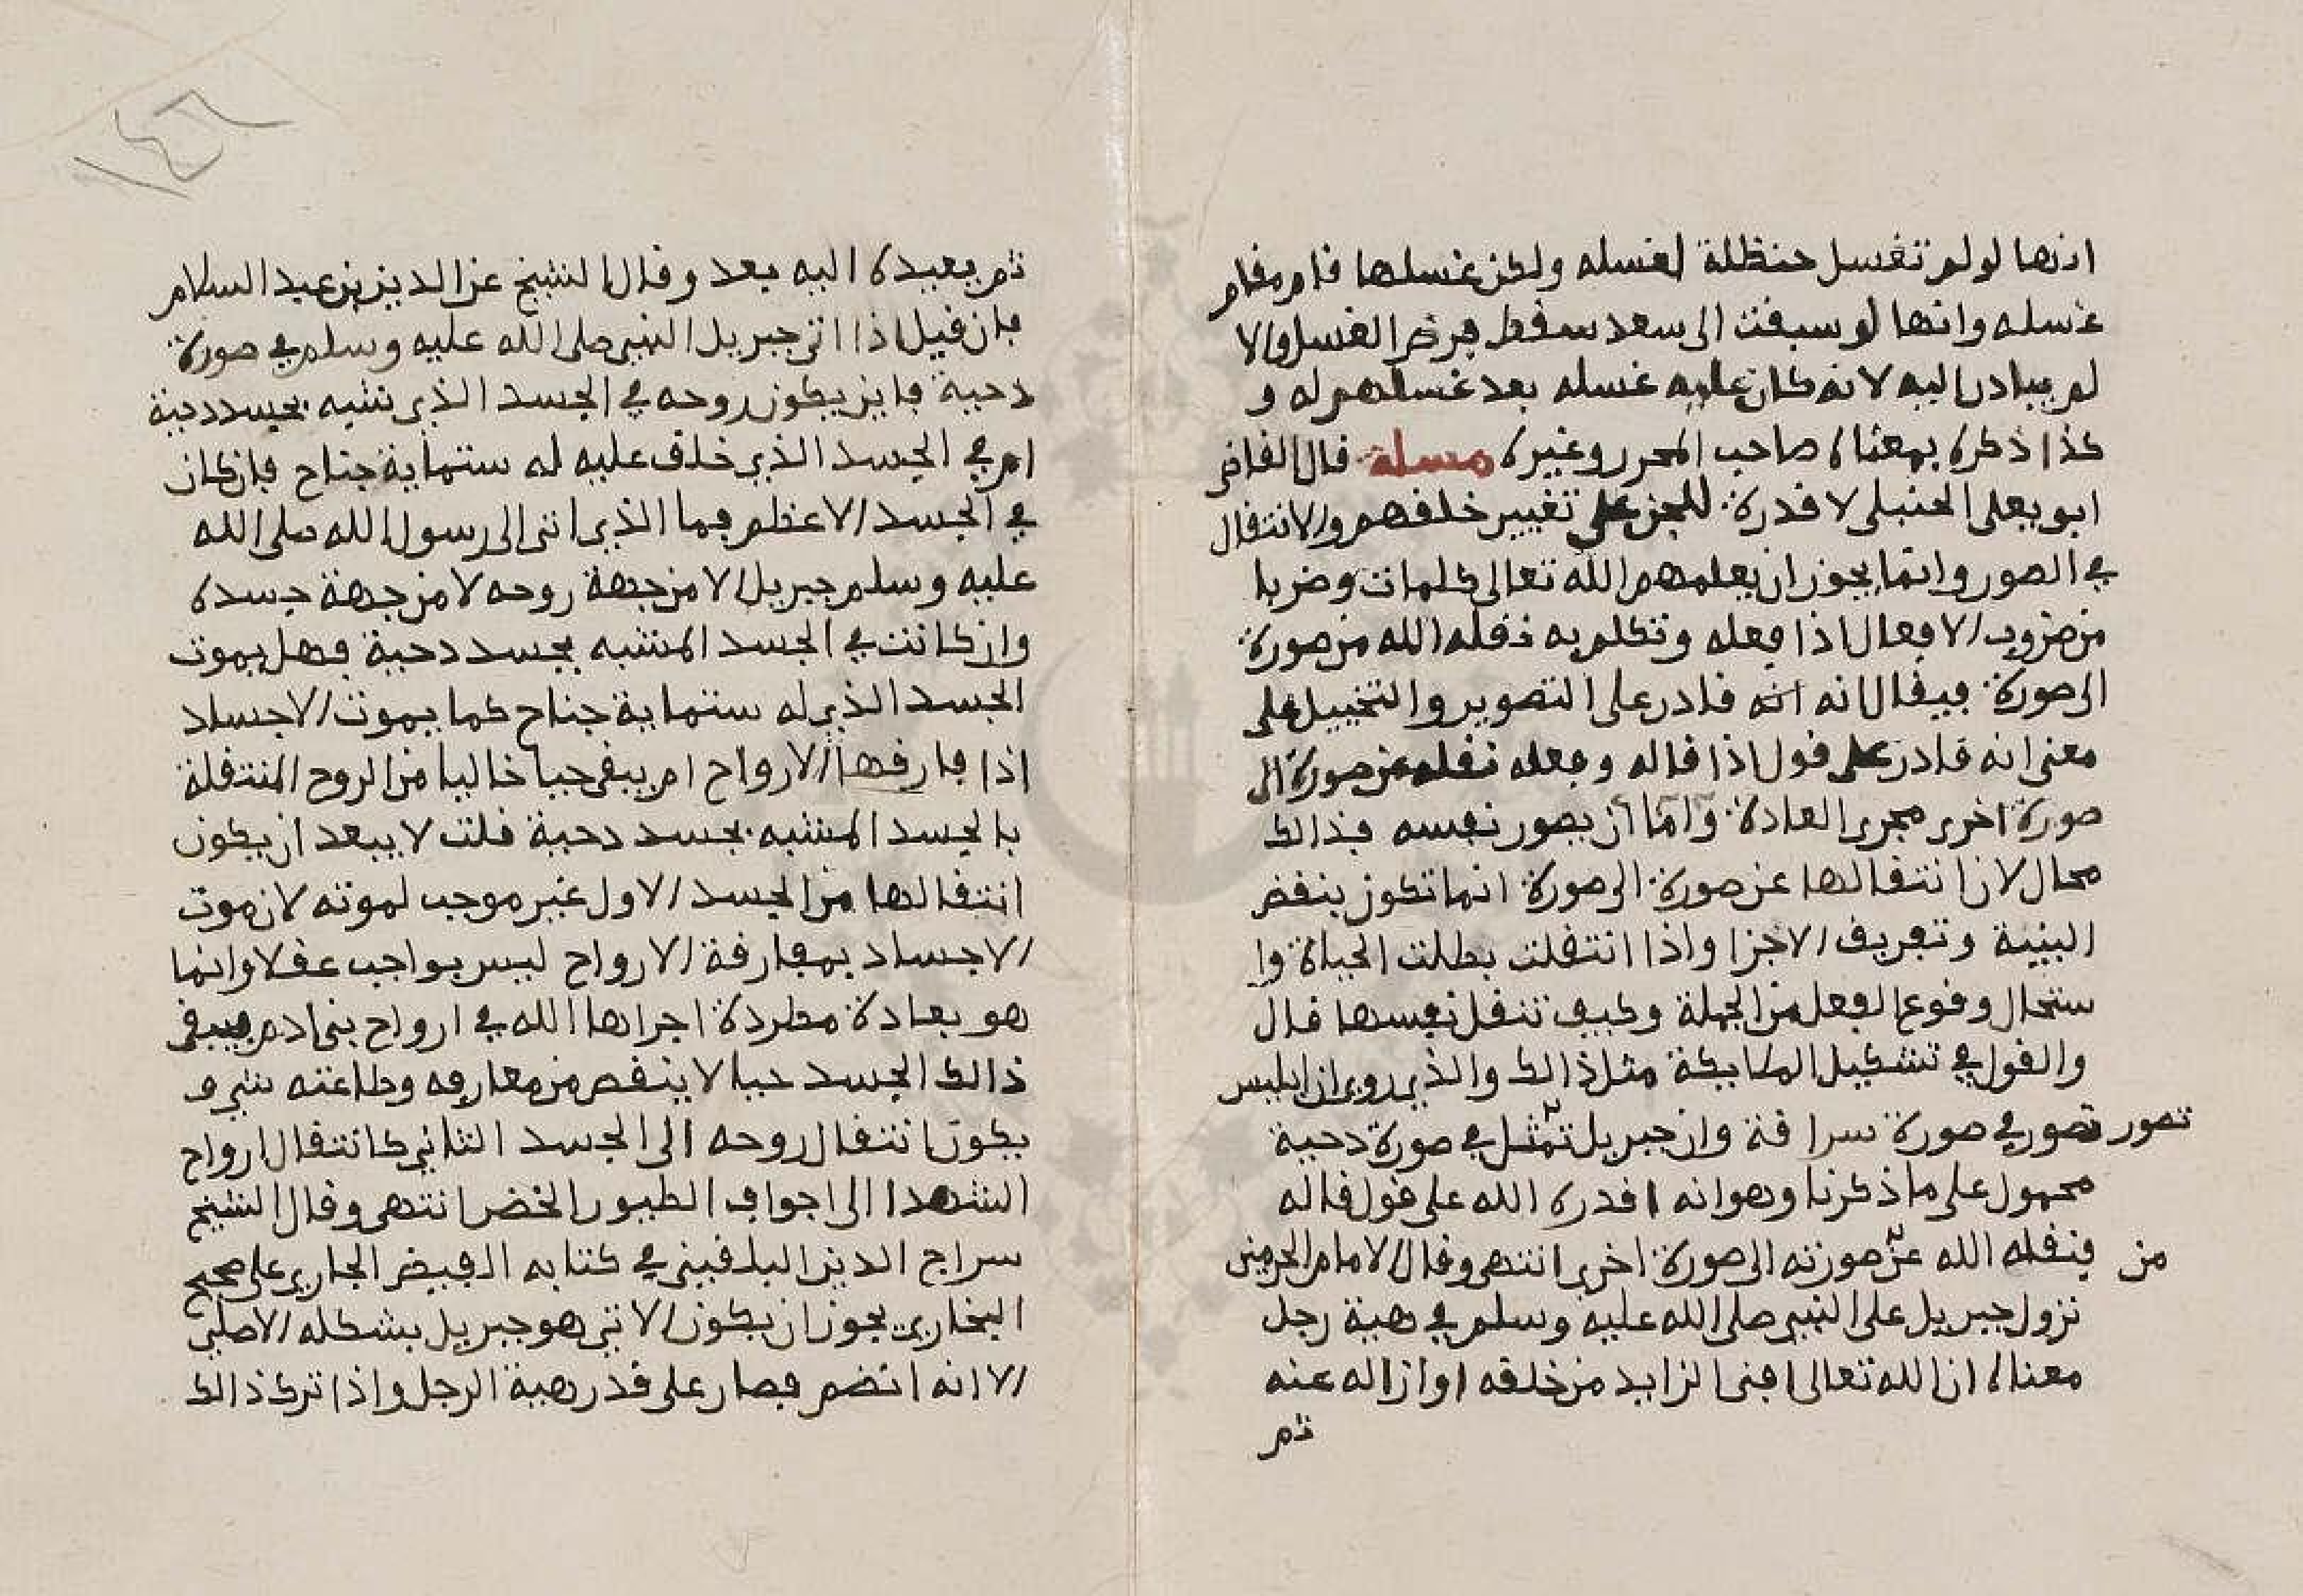 انها لو لم تغسل حنظلة لغسله ولكن غسلها قام مقام
غسله وانها لو سبقت الى سعد سقط فرض الغسل والا
لم يبادر اليه لانه كان عليه غسله بعد غسلهم له و
كذا ذكره بمعناه صاحب المحرر وغيره مسلة قال القاضي
ابو يعلى الحنبلى لا قدرة للجن على تغيير خلقهم والانتقال
في الصور وانما يجوز ان يعلمهم الله تعالى كلمات وضربا
من ضروب الافعال اذا فعله وتكلم به نقله الله من صورة
الى صورة فيقال انه انه قادر على التصوير والتخييل على
معنى انه قادر على قول اذا قاله وفعله نقله عن صورة الى
صورة اخرى مجرى العادة واما ان يصور نفسه فذالك
محال لان انتقالها عن صورة الى صورة انما تكون بنقض
البنية وتفريق الاجزا واذا انتقلت بطلت الحياة وا
ستحال وقوع الفعل من الجملة وكيف تنقل نفسها قال
والقول في تشكيل الملايكة مثل ذالك والذي روي ان ابليس
تصور تصور في صورة سراقة وان جبريل تمثل في صورة دحية
محمول على ما ذكرنا وهو انه اقدره الله على قول قاله
من فنقله الله عن صورته الى صورة اخرى انتهى وقال الامام الحرمين
نزول جبريل على النبي صلى الله عليه وسلم في هيئة رجل
معناه ان الله تعالى افنى الزايد من خلقه او ازاله عنه
ثم
ثم يعيده اليه بعد وقال الشيخ عز الدين بن عبد السلام
فان قيل اذا اتى جبريل النبي صلى الله عليه وسلم في صورة
دحية فاين يكون روحه في الجسد الذي تشبه بجسد دحية
ام في الجسد الذي خلق عليه له ستماية جناح فان كان
في الجسد الاعظم فما الذي اتى الى رسول الله صلى الله
عليه وسلم جبريل لا من جهة روحه لا من جهة جسده
وان كانت في الجسد المشبه بجسد دحية فهل يموت
الجسد الذي له ستماية جناح كما يموت الاجساد
اذا فارقها الارواح ام يبقى حيا خاليا من الروح المنتقلة
بالجسد المشبه بجسد دحية قلت لا يبعد ان يكون
انتقالها من الجسد الاول غير موجب لموته لان موت
الاجساد بمفارقة الارواح ليس بواجب عقلا وانما
هو بعادة مطردة اجراها الله في ارواح بني ادم فيبقى
ذالك الجسد حيا لا ينقص من معارفه وطاعته شي و
يكون انتقال روحه الى الجسد الثاني كانتقال ارواح
الشهدا الى اجواف الطيور الخضر انتهى وقال الشيخ
سراج الدين البلقيني في كتابه الفيض الجاري على صحيح
البخاري يجوز ان يكون الاتي هو جبريل بشكله الاصلي
الا انه انضم فصار على قدر هيئة الرجل واذا ترك ذالك